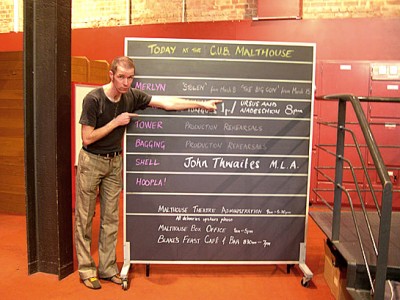 TODAY AT THE C.U.B. MALTHOUSE
MERLYN 'STOLEN' from March 8 'THE BIG CON' from March 15
1pm/ URSUS AND NADESCHKIN 8pm
TOWER PRODUCTION REHEARSALS
BAGGING PRODUCTION REHEARSALS
SHELL John Thwaites M.L.A.
HOOPLA!
MALTHOUSE THEATRE ADMINISTRATION
All deliveries upstairs please
MALTHOUSE BOX OFFICE 9am-5pm
BLAKES FEAST CAFÉ & BAR